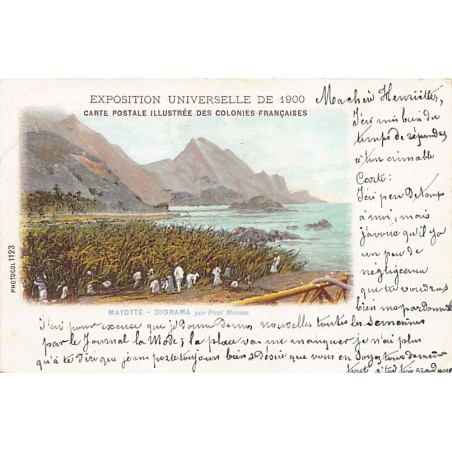 EXPOSITION UNIVERSELLE DE 1900
CARTE POSTALE ILLUSTRÉE DES COLONIES FRANÇAISES
PHOTOCOL 1123
MAYOTTE - DIORAMA par Paul Marsac
Ma cher Henriette,
J'ai mis bien du
temps de répondre
à ton aimable
Carte;
J'ai peu de temps
à moi, mais
j'avoue qu'il y a
un peu de
négligence
que tu voudras
bien me pardonner
J'ai pour excuse que je donne de nos nouvelles toutes les Semaines
par le Journal la Mode; la place va me manquer je n'ai plus
qu'à te dire que je me porte toujours bien & Désire que vous en Soyez tous de même
tout à toi